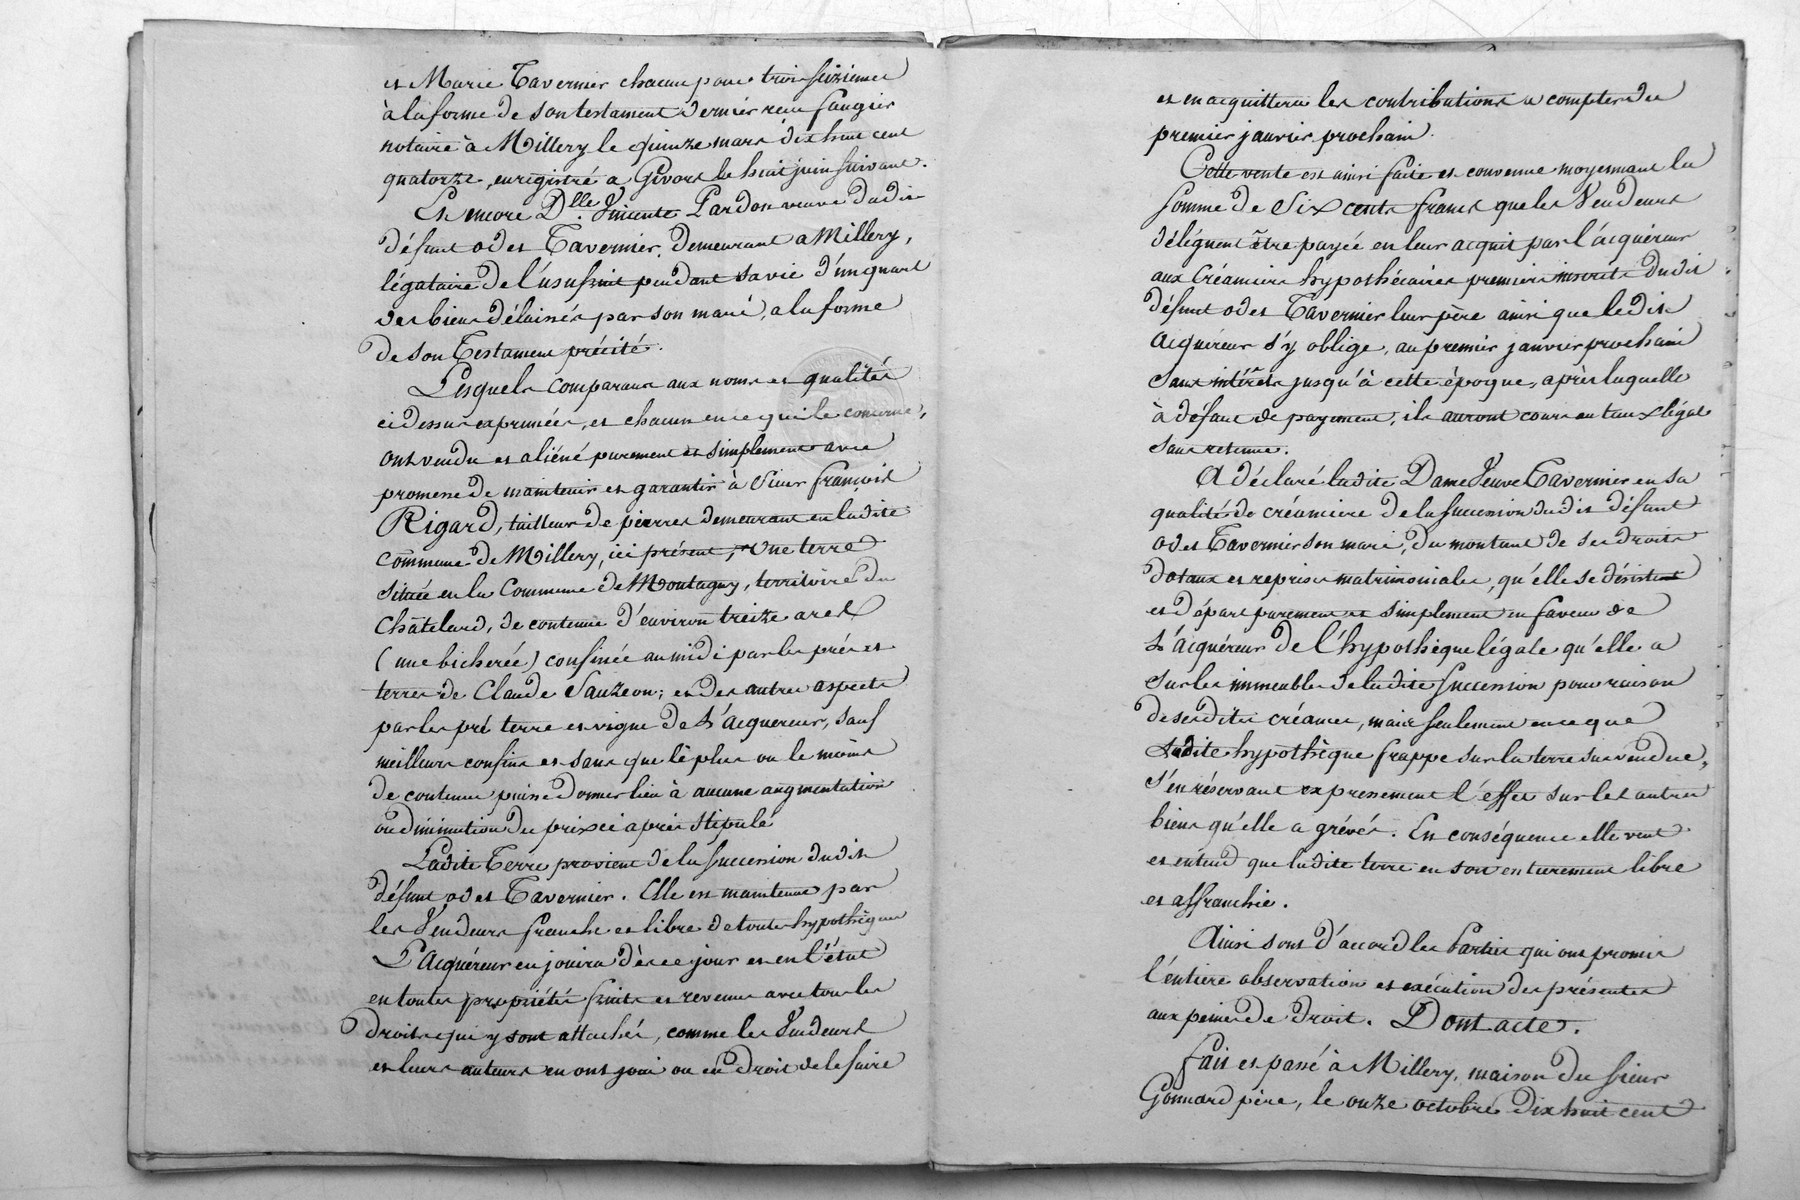 et Marie Tavernier chacun pour trois seizieme
à la forme de son testament dernier reçu Faugier
notaire à Millery le quinze mars dix huit cent
quatorze, enregistré a Givors le huit juin suivant.
Et encore Dlle. Vincente Pardon veuve dudit
défunt odet Tavernier, demeurant a Millery,
légataire de l'usufruit pendant sa vie d'un quart
des biens délaissés par son mari, a la forme
de son Testament précité.
Lesquels comparans aux noms et qualités
ci dessus exprimées, et chacun en ce qui le concerne,
ont vendu et aliéné purement et simplement avec
promesse de maintenir et garantir à Sieur françois
Rigard, tailleur de pierres demeurant en ladite
commune de Millery, ici présent, Une terre
située en la Commune de Montagny, territoire du
Châtelard, de contenue d'environ treize ares
(une bicherée) confinée au midi par les prés et
terres de Claude Sauzeon; et des autres aspects
par les pré terre et vigne de L'acquereur, sauf
meilleurs confins et sans que le plus ou le moins
de contenue puisse donner lieu à aucune augmentation
ou diminution du prix ci après stipulé
Ladite Terre provient de la succession dudit
défunt odet Tavernier. Elle est maintenue par
les Vendeurs franche et libre de toutes hypothèques
L'Acquéreur en jouira dès ce jour et en l'état
en toutes propriétés fruits et revenus avec tous les
droits qui y sont attachés, comme les Vendeurs
et leurs auteurs en ont joui ou eu droit de le faire
et en acquittera les contributions a compter du
premier janvier prochain.
Cette vente est ainsi faite et convenue moyennant la
somme de Six cents francs que les Vendeurs
délèguent être payée en leur acquit par l'acquéreur
aux Créanciers hypothécaires premiers inscrits dudit
défunt odet Tavernier leur père ainsi que ledit
acquéreur s'y oblige, au premier janvier prochain
sans intérêts jusqu'à cette époque, après laquelle
à défaut de payement, ils auront cours au taux légal
sans retenue.
A déclaré ladite Dame Veuve Tavernier en sa
qualité de créancière de la succession dudit défunt
odet Tavernier son mari, du montant de ses droits
dotaux et reprises matrimoniales, qu'elle se désistent
et départ purement et simplement en faveur de
L'acquéreur de l'hypothèque légale qu'elle a
sur les immeubles de ladite succession pour raison
de sesdites créances, mais seulement en ce que
ladite hypothèque frappe sur la terre sus vendue,
s'en réservant expressement l'effet sur les autres
biens qu'elle a grévés. En conséquence elle veut
et entend que ladite terre en soit entierement libre
et affranchie.
Ainsi sont d'accord les Parties qui ont promis
l'entiere observation et exécution des présentes
aux peines de droit. Dont acte.
Fait et passé à Millery, maison du sieur
Gonnard père, le onze octobre dix huit cent